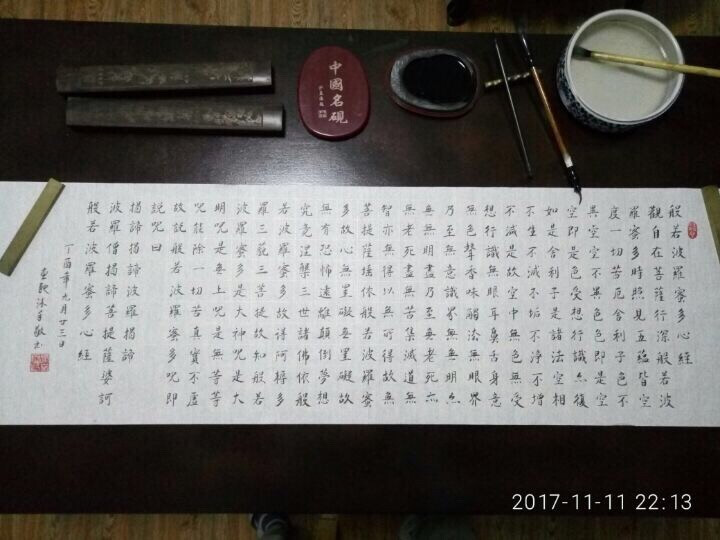 中國名硯
般若波羅蜜多心經
觀自在菩薩行深般若波
羅蜜多時照見五蘊皆空
度一切苦厄舍利子色不
異空空不異色色即是空
空即是色受想行識亦復
如是舍利子是諸法空相
不生不滅不垢不淨不增
不減是故空中無色無受
想行識無眼耳鼻舌身意
無色聲香味觸法無眼界
乃至無意識界無無明亦
無無明盡乃至無老死亦
無老死盡無苦集滅道無
智亦無得以無所得故
菩提薩埵依般若波羅蜜
多故心無罣礙無罣礙故
無有恐怖遠離顛倒夢想
究竟涅槃三世諸佛依般
若波羅蜜多故得阿耨多
羅三藐三菩提故知般若
波羅蜜多是大神呪是大
明呪是無上呪是無等等
呪能除一切苦真實不虛
故說般若波羅蜜多呪即
說呪曰
揭諦揭諦波羅揭諦
波羅僧揭諦菩提薩婆訶
般若波羅蜜多心經
丁酉年九月廿三日
沐手敬書
2017-11-11 22:13